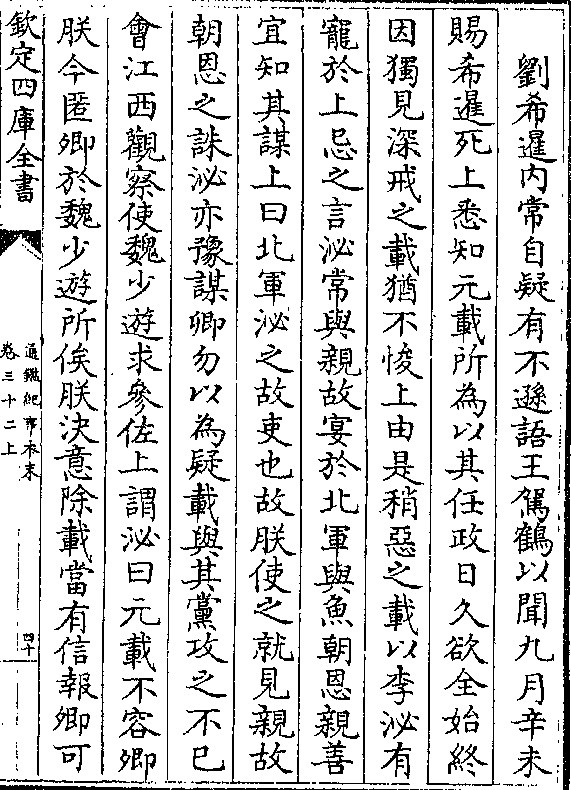 劉希暹内常自疑有不遜語王駕鶴以聞九月辛未
賜希暹死上悉知元載所為以其任政日久欲全始終
因獨見深戒之載猶不悛上由是稍惡之載以李泌有
寵於上忌之言泌常與親故宴於北軍與魚朝恩親善
宜知其謀上曰北軍泌之故吏也故朕使之就見親故
朝恩之誅泌亦豫謀卿勿以為疑載與其黨攻之不已
㑹江西觀察使魏少遊求參佐上謂泌曰元載不容卿
朕今匿卿於魏少遊所俟朕決意除載當有信報卿可
欽定四庫全書
通鑑紀事本末
卷三十二上
四十